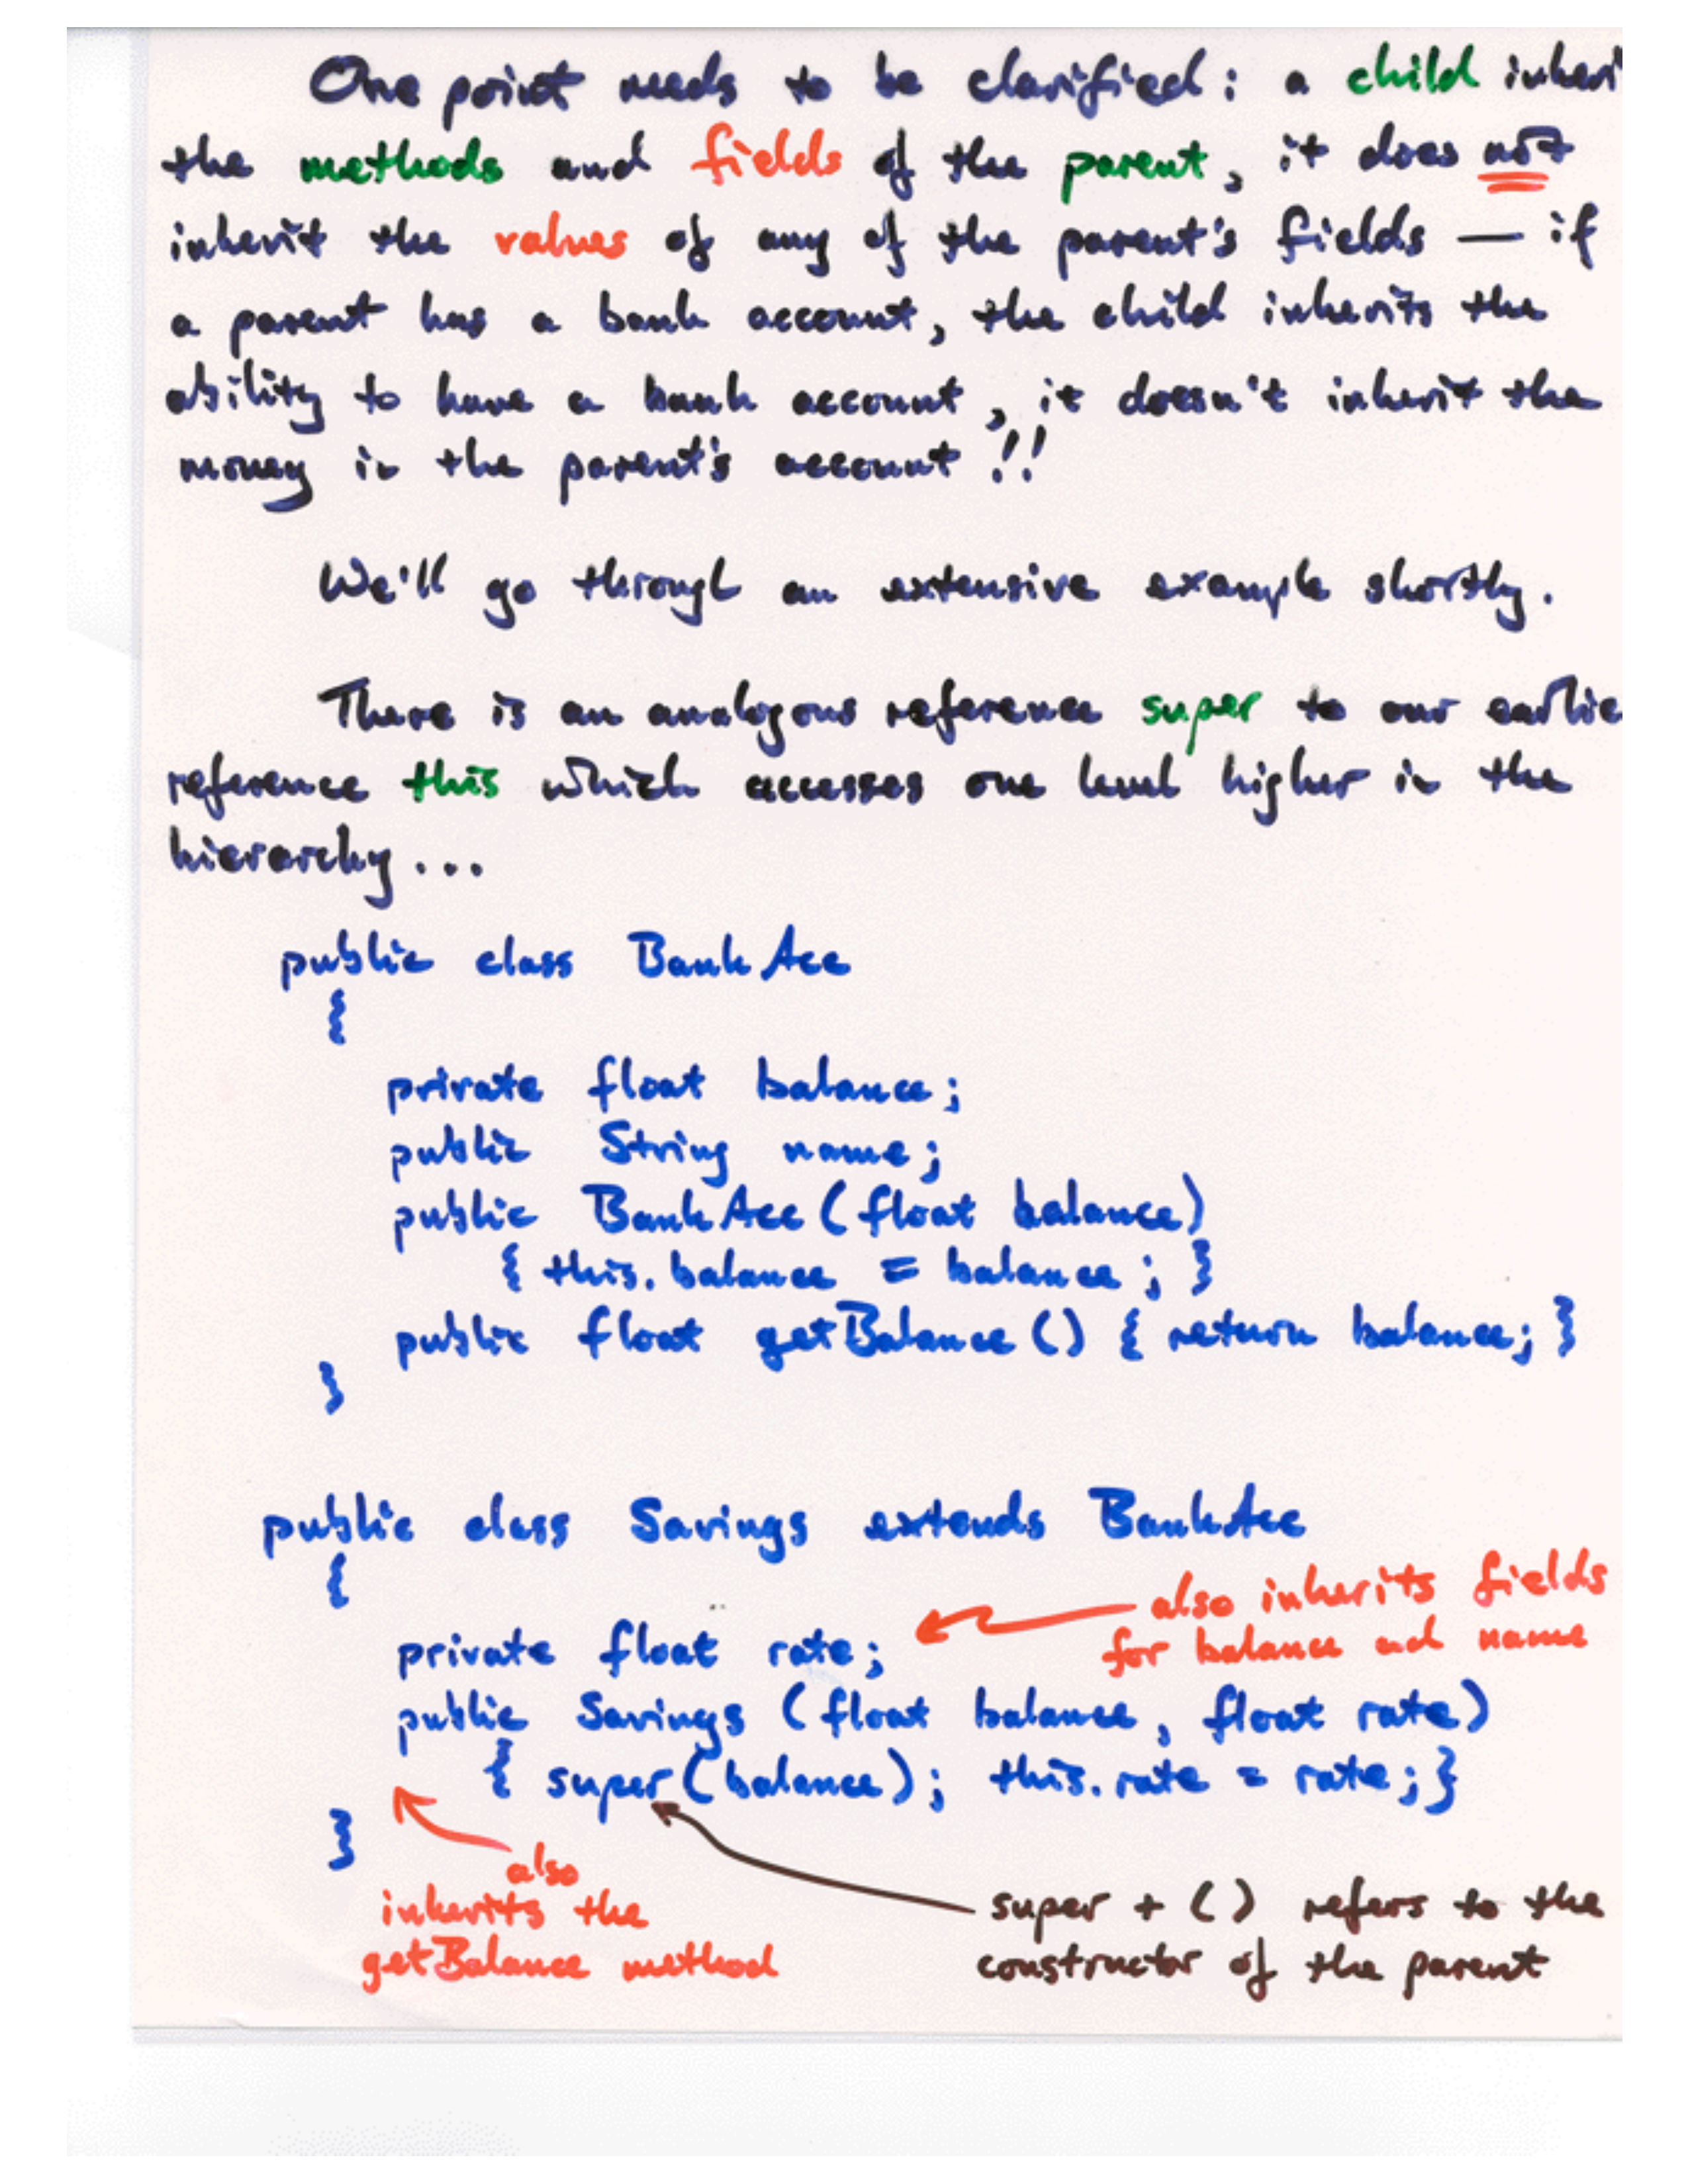 One point needs to be clarified: a child inheri
the methods and fields of the parent, it does not
inherit the values of any of the parent's fields — if
a parent has a bank account, the child inherits the
ability to have a bank account, it doesn't inherit the
money in the parent's account!!!
We'll go through an extensive example shortly.
There is an analogous reference super to our earlie
reference this which accesses one level higher in the
hierarchy...
public class BankAcc
{
private float balance;
public String name;
public BankAcc (float balance)
{ this.balance = balance; }
public float getBalance () { return balance; }
}
public class Savings extends BankAcc
{
also inherits fields
for balance ad name
private float rate;
public Savings (float balance, float rate)
{ super (balance); this.rate = rate; }
}
also
inherits the
getBalance method
super + () refers to the
constructor of the parent